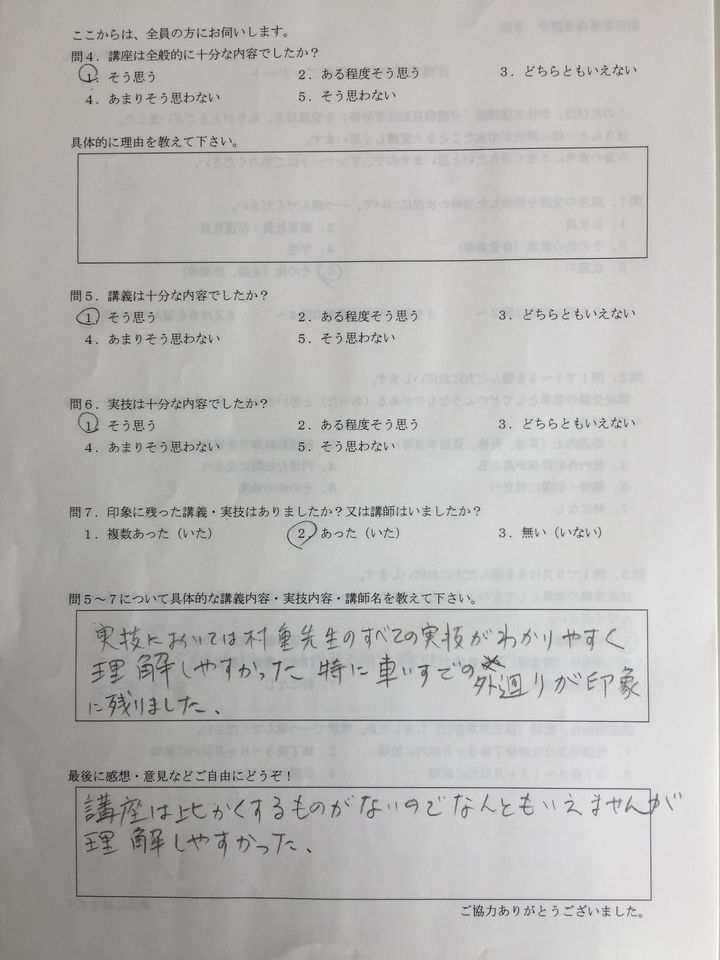 ここからは、全員の方にお伺いします。
問4．講座は全般的に十分な内容でしたか？
1．そう思う 2．ある程度そう思う 3．どちらともいえない
4．あまりそう思わない 5．そう思わない
具体的に理由を教えて下さい。
問5．講義は十分な内容でしたか？
1．そう思う 2．ある程度そう思う 3．どちらともいえない
4．あまりそう思わない 5．そう思わない
問6．実技は十分な内容でしたか？
1．そう思う 2．ある程度そう思う 3．どちらともいえない
4．あまりそう思わない 5．そう思わない
問7．印象に残った講義・実技はありましたか？又は講師はいましたか？
1．複数あった（いた） 2．あった（いた） 3．無い（いない）
問5～7について具体的な講義内容・実技内容・講師名を教えて下さい。
実技においては村重先生のすべての実技がわかりやすく
理解しやすかった 特に車いすでの外廻りが印象
に残りました、
最後に感想・意見などご自由にどうぞ！
講座は比かくするものがないのでなんともいえませんが
理解しやすかった、
ご協力ありがとうございました。